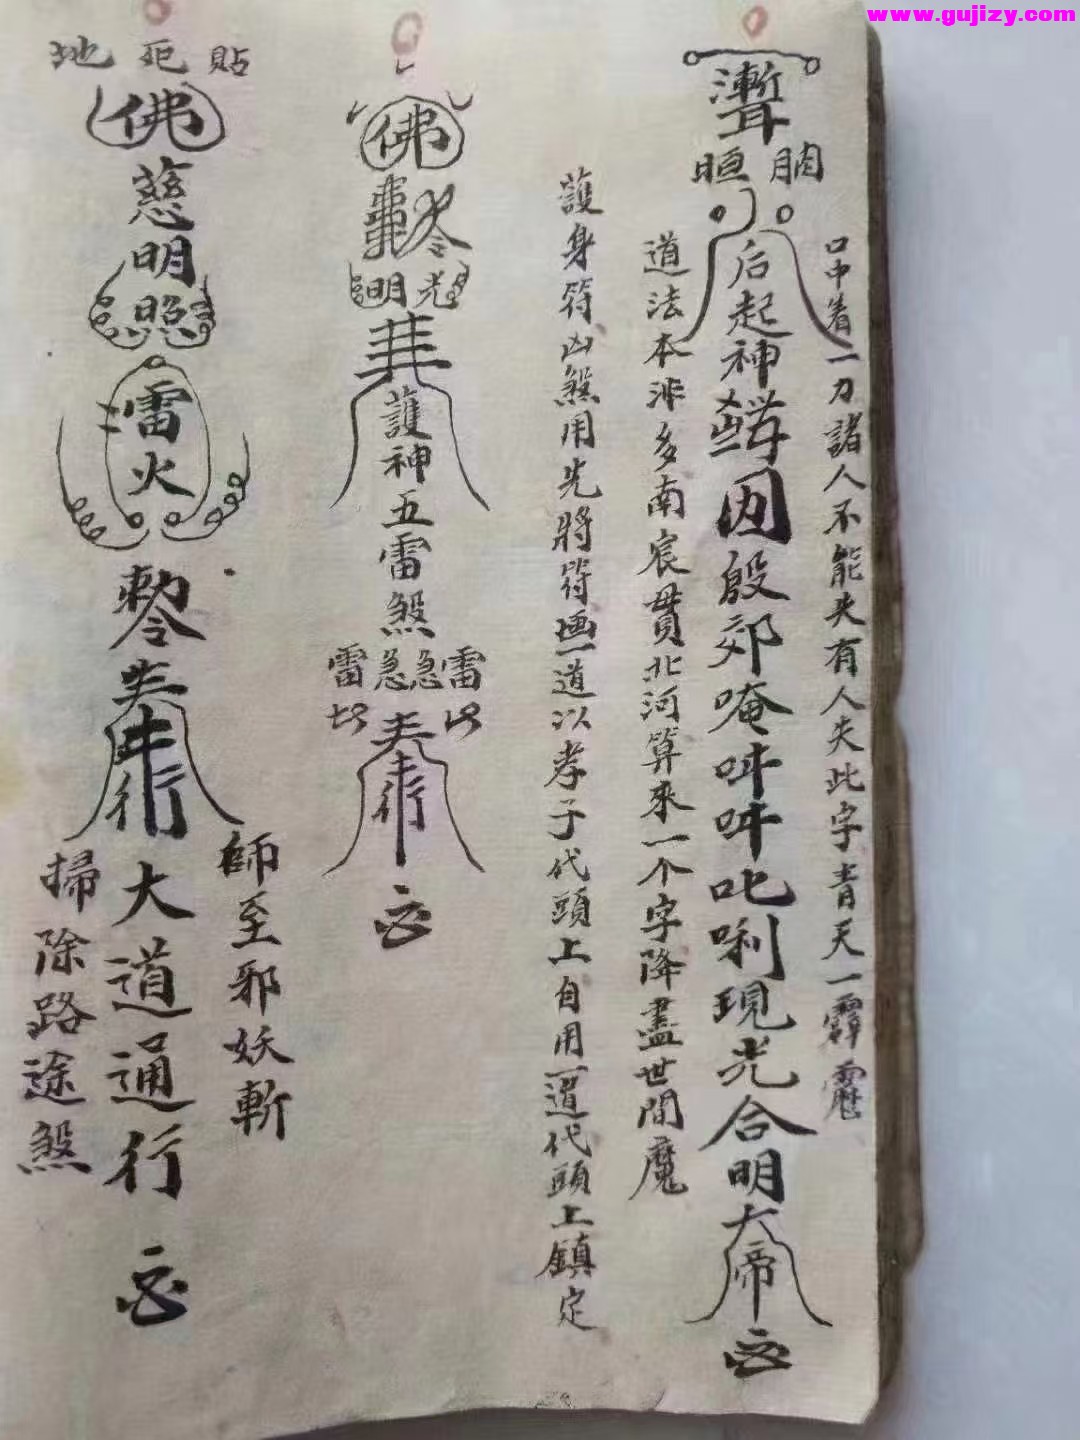 www.gujizy.com
口中着一刀諸人不能夫有人夫此字青天一霹靂
后起神
殷郊唵吽吽叱唎現光合明大帝
道法本非多南宸貫北河算來一个字降盡世間魔
護身符凶煞用先將符画一道以孝子代頭上自用一道代頭上鎮定
佛
明光
護神五雷煞
雷急急雷
貼死地
佛
慈明照
雷火
大道通行
師至邪妖斬
掃除路途煞